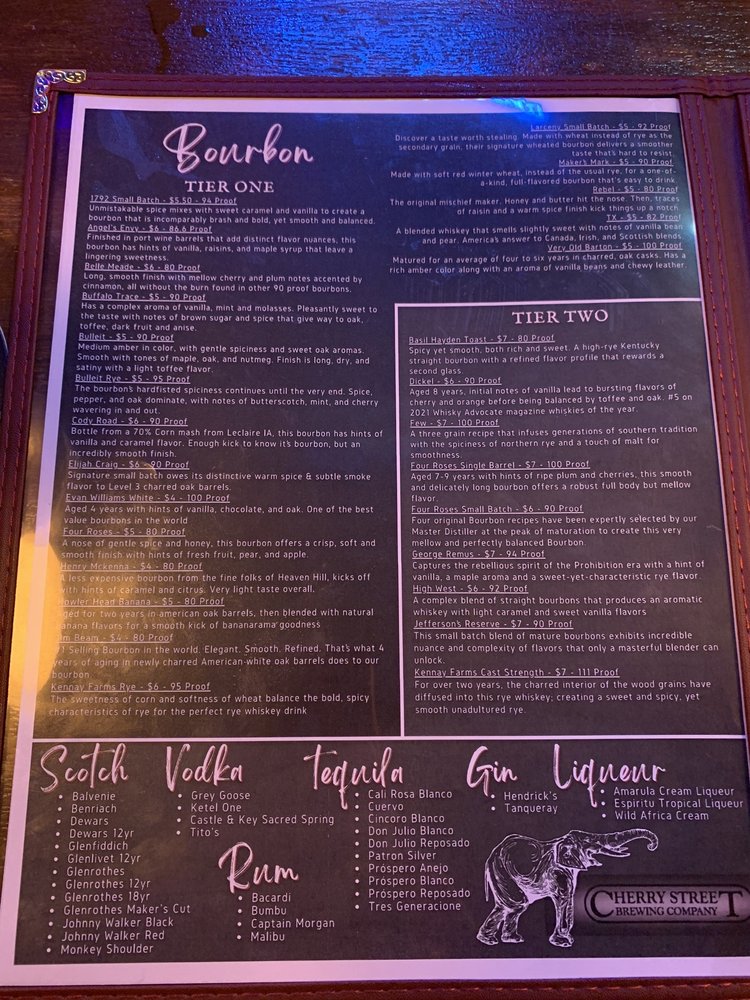 Bourbon
TIER ONE
1792 Small Batch - $5.50 - 94 Proof
Unmistakable spice mixes with sweet caramel and vanilla to create a
bourbon that is incomparably brash and bold, yet smooth and balanced.
Angel's Envy - $6 - 86.6 Proof
Finished in port wine barrels that add distinct flavor nuances, this
bourbon has hints of vanilla, raisins, and maple syrup that leave a
lingering sweetness.
Belle Meade - $6 - 80 Proof
Long, smooth finish with mellow cherry and plum notes accented by
cinnamon, all without the burn found in other 90 proof bourbons.
Buffalo Trace - $5 - 90 Proof
Has a complex aroma of vanilla, mint and molasses. Pleasantly sweet to
the taste with notes of brown sugar and spice that give way to oak,
toffee, dark fruit and anise.
Bulleit - $5 - 90 Proof
Medium amber in color, with gentle spiciness and sweet oak aromas.
Smooth with tones of maple, oak, and nutmeg. Finish is long, dry, and
satiny with a light toffee flavor.
Bulleit Rye - $5 - 95 Proof
The bourbon's hardfisted spiciness continues until the very end. Spice,
pepper, and oak dominate, with notes of butterscotch, mint, and cherry
wavering in and out.
Cody Road - $6 - 90 Proof
Bottle from a 70% Corn mash from Leclaire IA, this bourbon has hints of
vanilla and caramel flavor. Enough kick to know it's bourbon, but an
incredibly smooth finish.
Elijah Craig - $6 - 90 Proof
Signature small batch owes its distinctive warm spice & subtle smoke
flavor to Level 3 charred oak barrels.
Evan Williams White - $4 - 100 Proof
Aged 4 years with hints of vanilla, chocolate, and oak. One of the best
value bourbons in the world
Four Roses - $5 - 80 Proof
A nose of gentle spice and honey, this bourbon offers a crisp, soft and
smooth finish with hints of fresh fruit, pear, and apple.
Henry Mckenna - $4 - 80 Proof
A less expensive bourbon from the fine folks of Heaven Hill, kicks off
with hints of caramel and citrus. Very light taste overall.
Howler Head Banana - $5 - 80 Proof
Aged for two years in american oak barrels, then blended with natural
banana flavors for a smooth kick of bananarama goodness
Jim Beam - $4 - 80 Proof
#1 Selling Bourbon in the world. Elegant. Smooth. Refined. That's what 4
years of aging in newly charred American-white oak barrels does to our
bourbon.
Kennay Farms Rye - $6 - 95 Proof
The sweetness of corn and softness of wheat balance the bold, spicy
characteristics of rye for the perfect rye whiskey drink
Larceny Small Batch - $5 - 92 Proof
Discover a taste worth stealing. Made with wheat instead of rye as the
secondary grain, their signature wheated bourbon delivers a smoother
taste that's hard to resist.
Maker's Mark - $5 - 90 Proof
Made with soft red winter wheat, instead of the usual rye, for a one-of-
a-kind, full-flavored bourbon that's easy to drink.
Rebel - $5 - 80 Proof
The original mischief maker. Honey and butter hit the nose. Then, traces
of raisin and a warm spice finish kick things up a notch.
TX - $5 - 82 Proof
A blended whiskey that smells slightly sweet with notes of vanilla bean
and pear. America's answer to Canada, Irish, and Scottish blends.
Very Old Barton - $5 - 100 Proof
Matured for an average of four to six years in charred, oak casks. Has a
rich amber color along with an aroma of vanilla beans and chewy leather.
TIER TWO
Basil Hayden Toast - $7 - 80 Proof
Spicy yet smooth, both rich and sweet. A high-rye Kentucky
straight bourbon with a refined flavor profile that rewards a
second glass.
Dickel - $6 - 90 Proof
Aged 8 years, initial notes of vanilla lead to bursting flavors of
cherry and orange before being balanced by toffee and oak. #5 on
2021 Whisky Advocate magazine whiskies of the year.
Few - $7 - 100 Proof
A three grain recipe that infuses generations of southern tradition
with the spiciness of northern rye and a touch of malt for
smoothness.
Four Roses Single Barrel - $7 - 100 Proof
Aged 7-9 years with hints of ripe plum and cherries, this smooth
and delicately long bourbon offers a robust full body but mellow
flavor.
Four Roses Small Batch - $6 - 90 Proof
Four original Bourbon recipes have been expertly selected by our
Master Distiller at the peak of maturation to create this very
mellow and perfectly balanced Bourbon.
George Remus - $7 - 94 Proof
Captures the rebellious spirit of the Prohibition era with a hint of
vanilla, a maple aroma and a sweet-yet-characteristic rye flavor.
High West - $6 - 92 Proof
A complex blend of straight bourbons that produces an aromatic
whiskey with light caramel and sweet vanilla flavors
Jefferson's Reserve - $7 - 90 Proof
This small batch blend of mature bourbons exhibits incredible
nuance and complexity of flavors that only a masterful blender can
unlock.
Kennay Farms Cast Strength - $7 - 111 Proof
For over two years, the charred interior of the wood grains have
diffused into this rye whiskey; creating a sweet and spicy, yet
smooth unadultured rye.
Scotch
• Balvenie
• Benriach
• Dewars
• Dewars 12yr
• Glenfiddich
• Glenlivet 12yr
• Glenrothes
• Glenrothes 12yr
• Glenrothes 18yr
• Glenrothes Maker's Cut
• Johnny Walker Black
• Johnny Walker Red
• Monkey Shoulder
Vodka
• Grey Goose
• Ketel One
• Castle & Key Sacred Spring
• Tito's
Rum
• Bacardi
• Bumbu
• Captain Morgan
• Malibu
Tequila
• Cali Rosa Blanco
• Cuervo
• Cincoro Blanco
• Don Julio Blanco
• Don Julio Reposado
• Patron Silver
• Próspero Anejo
• Próspero Blanco
• Próspero Reposado
• Tres Generacione
Gin
• Hendrick's
• Tanqueray
Liqueur
• Amarula Cream Liqueur
• Espiritu Tropical Liqueur
• Wild Africa Cream
CHERRY STREET
BREWING COMPANY